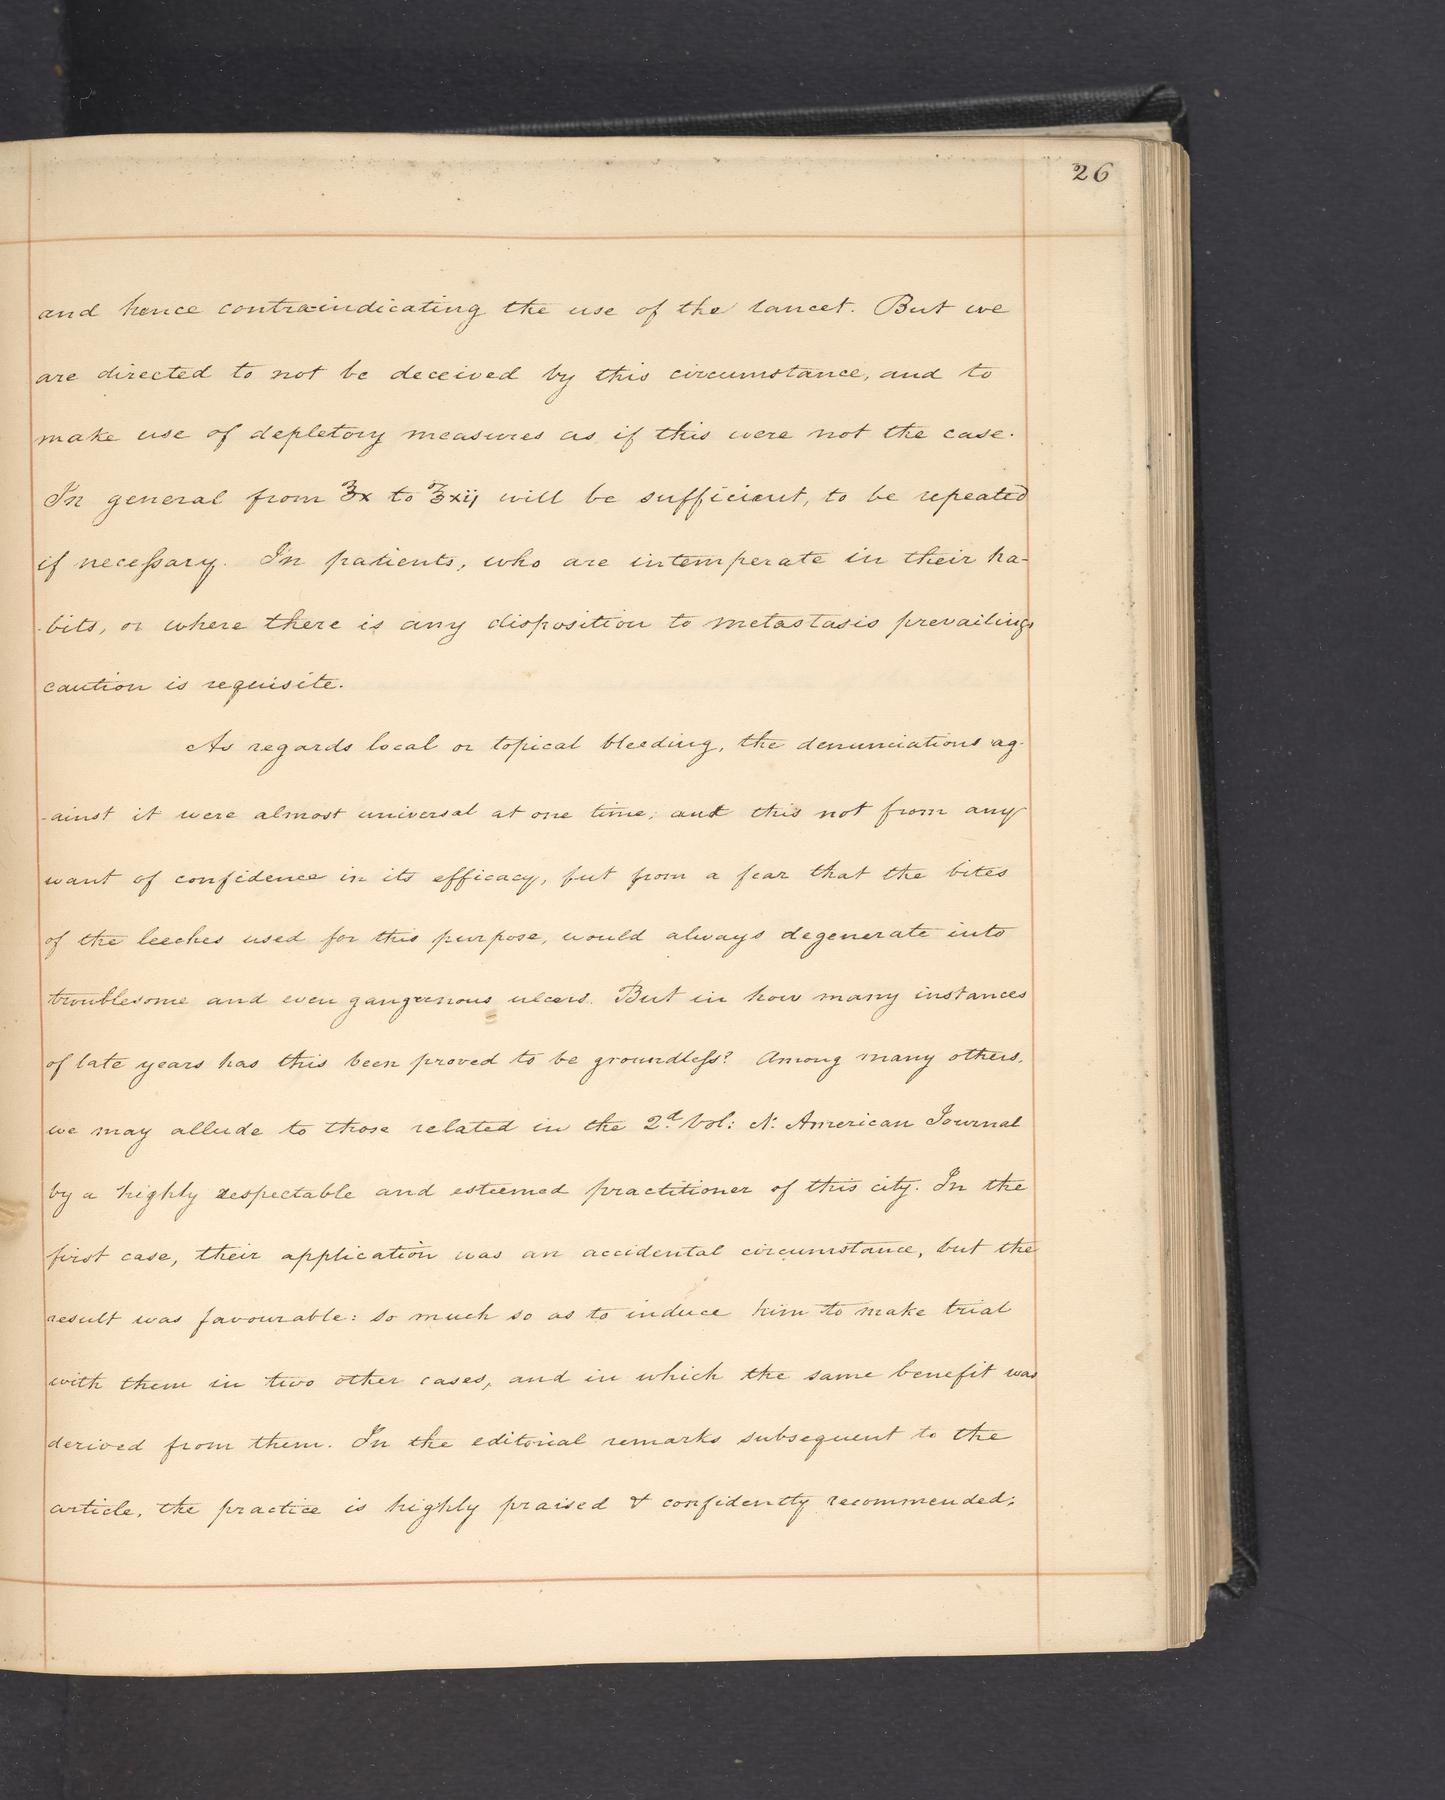 26
and hence contraindicating the use of the lancet. But we
are directed to not be deceived by this circumstance, and to
make use of depletory measures as if this were not the case.
In general from ℥x to ℥xij will be sufficient, to be repeated
if necessary. In patients, who are intemperate in their ha-
-bits, or where there is any disposition to metastasis prevailing,
caution is requisite.
As regards local or topical bleeding, the denunciations ag-
-ainst it were almost universal at one time; and this not from any
want of confidence in its efficacy, but from a fear that the bites
of the leeches used for this purpose, would always degenerate into
troublesome and even gangrenous ulcers. But in how many instances
of late years has this been proved to be groundless? Among many others,
we may allude to those related in the 2.d Vol: N. American Journal
by a highly respectable and esteemed practitioner of this city. In the
first case, their application was an accidental circumstance, but the
result was favourable: so much so as to induce him to make trial
with them in two other cases, and in which the same benefit was
derived from them. In the editorial remarks subsequent to the
article, the practice is highly praised & confidently recommended;